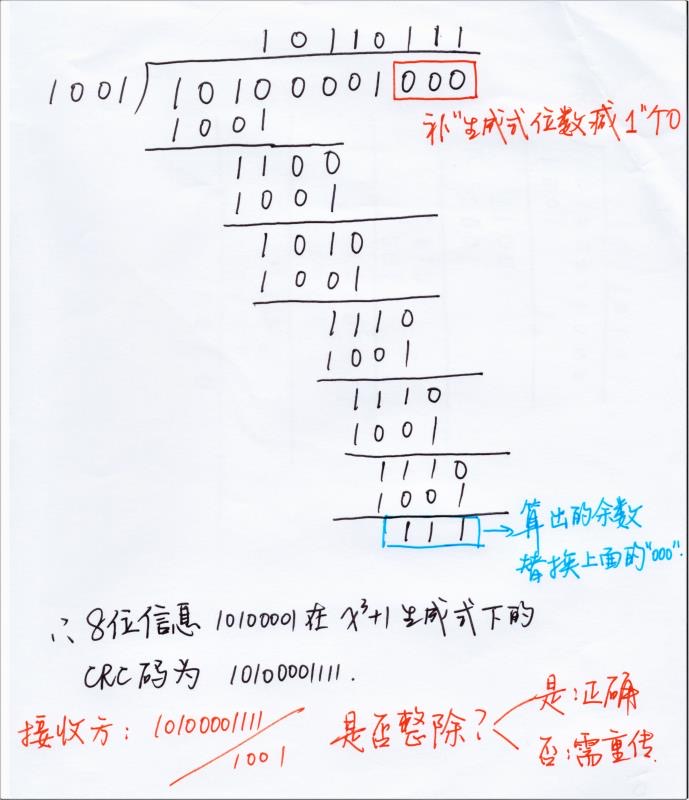 10110111
1001 10100001000
1001
补"生成式位数减1"个0
1100
1001
1010
1001
1110
1001
1110
1001
1110
1001
111 → 算出的余数
替换上面的"000".
∴ 8位信息 10100001 在 x³+1 生成式下的
CRC码为 10100001111.
接收方: 10100001111 / 1001 是否整除?
是:正确
否:需重传.